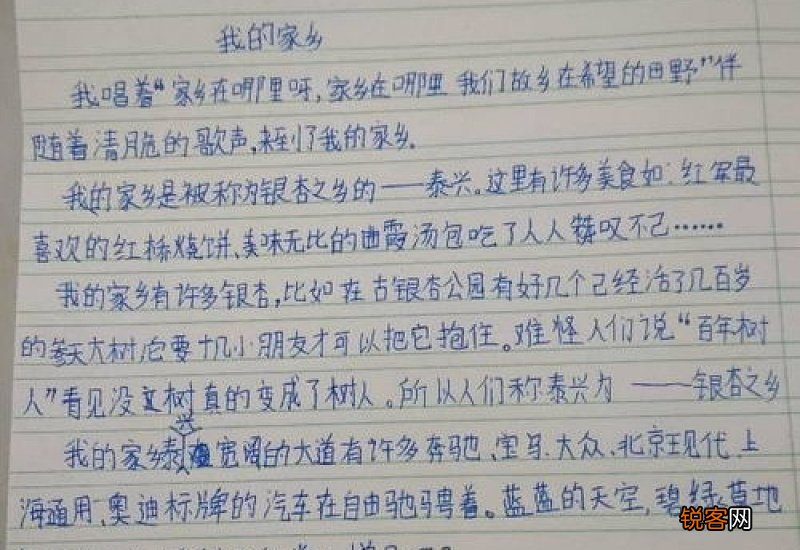 我的家乡
我唱着“家乡在哪里呀,家乡在哪里 我们故乡在希望的田野”伴
随着清脆的歌声,来到了我的家乡.
我的家乡是被称为银杏之乡的——泰兴。这里有许多美食如:红军最
喜欢的红桥烧饼、美味无比的曲霞汤包吃了人人赞叹不己……
我的家乡有许多银杏,比如在古银杏公园有好几个己经活了几百岁
的参天大树,它要十几小朋友才可以把它抱住。难怪人们说“百年树
人”看见没文树真的变成了树人。所以人们称泰兴为——银杏之乡
我的家乡泰兴宽阔的大道有许多奔驰、宝马、大众、北京现代、上
海通用、奥迪标牌的汽车在自由驰骋着。蓝蓝的天空,碧绿草地
锐客网